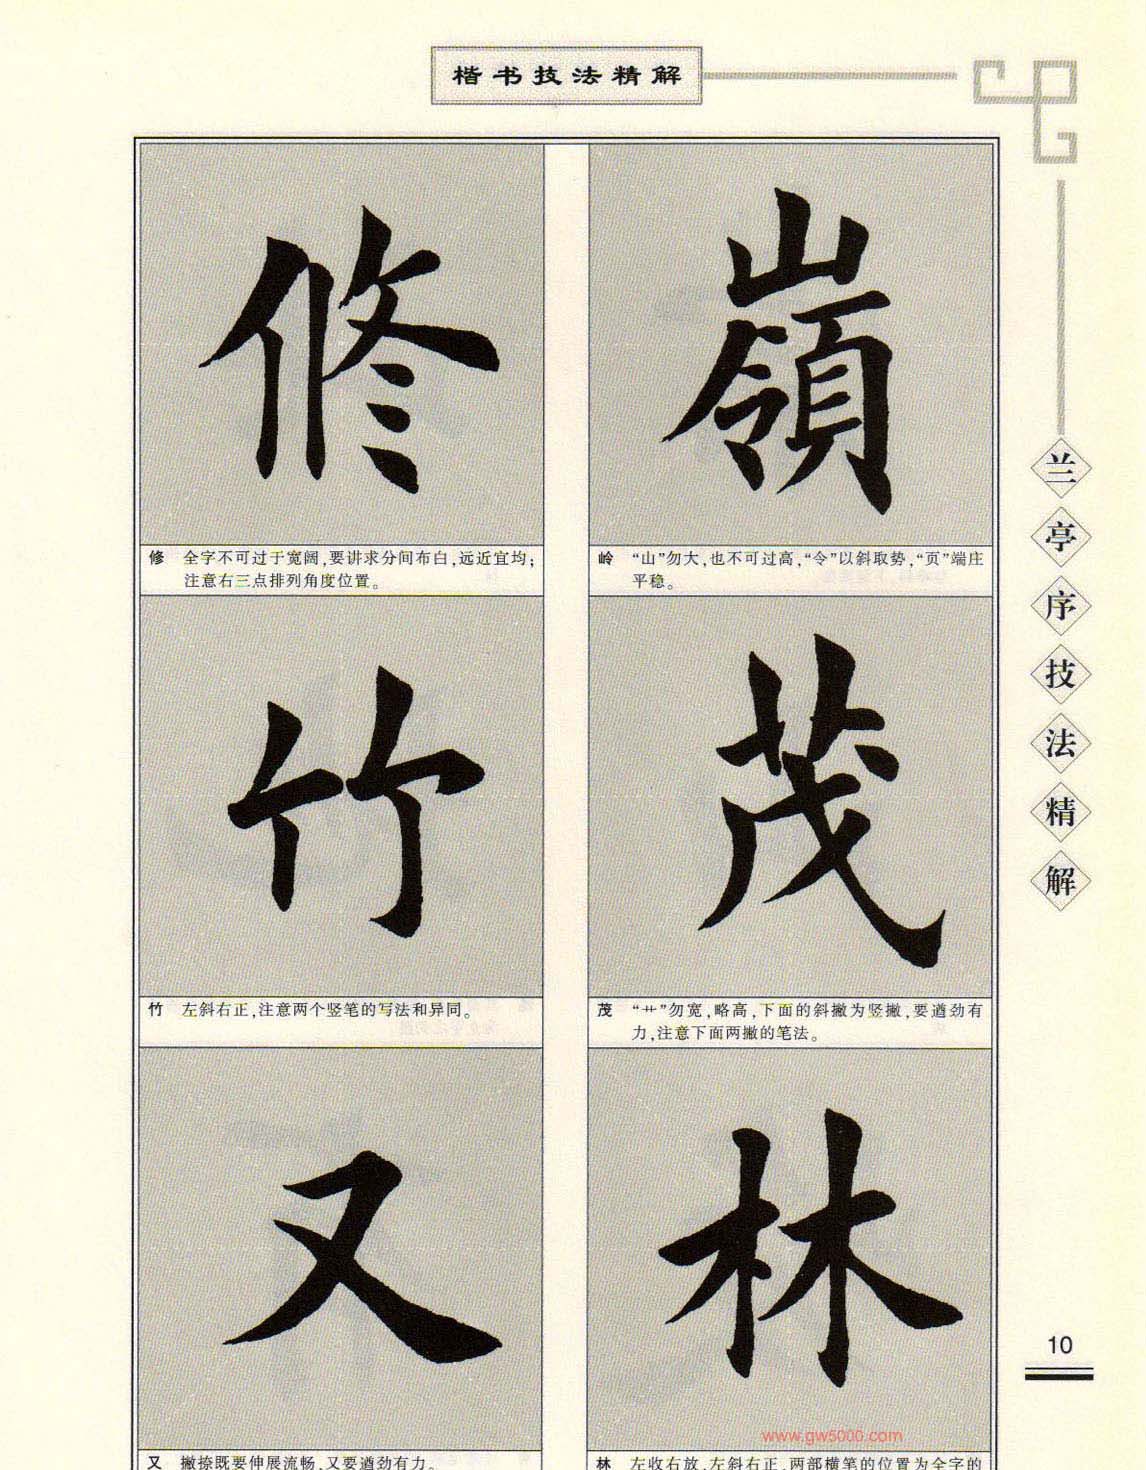 楷书技法精解
嶺
岭 “山”勿大，也不可过高，“令”以斜取势，“页”端庄
平稳。
茂
茂 “艹”勿宽，略高，下面的斜撇为竖撇，要遒劲有
力，注意下面两撇的笔法。
林
林 左收右放，左斜右正，两部横笔的位置为全字的
修
修 全字不可过于宽阔，要讲求分间布白，远近宜均；
注意右三点排列角度位置。
竹
竹 左斜右正，注意两个竖笔的写法和异同。
又
又 撇捺既要伸展流畅，又要遒劲有力。
兰亭序技法精解
10
www.gw5000.com